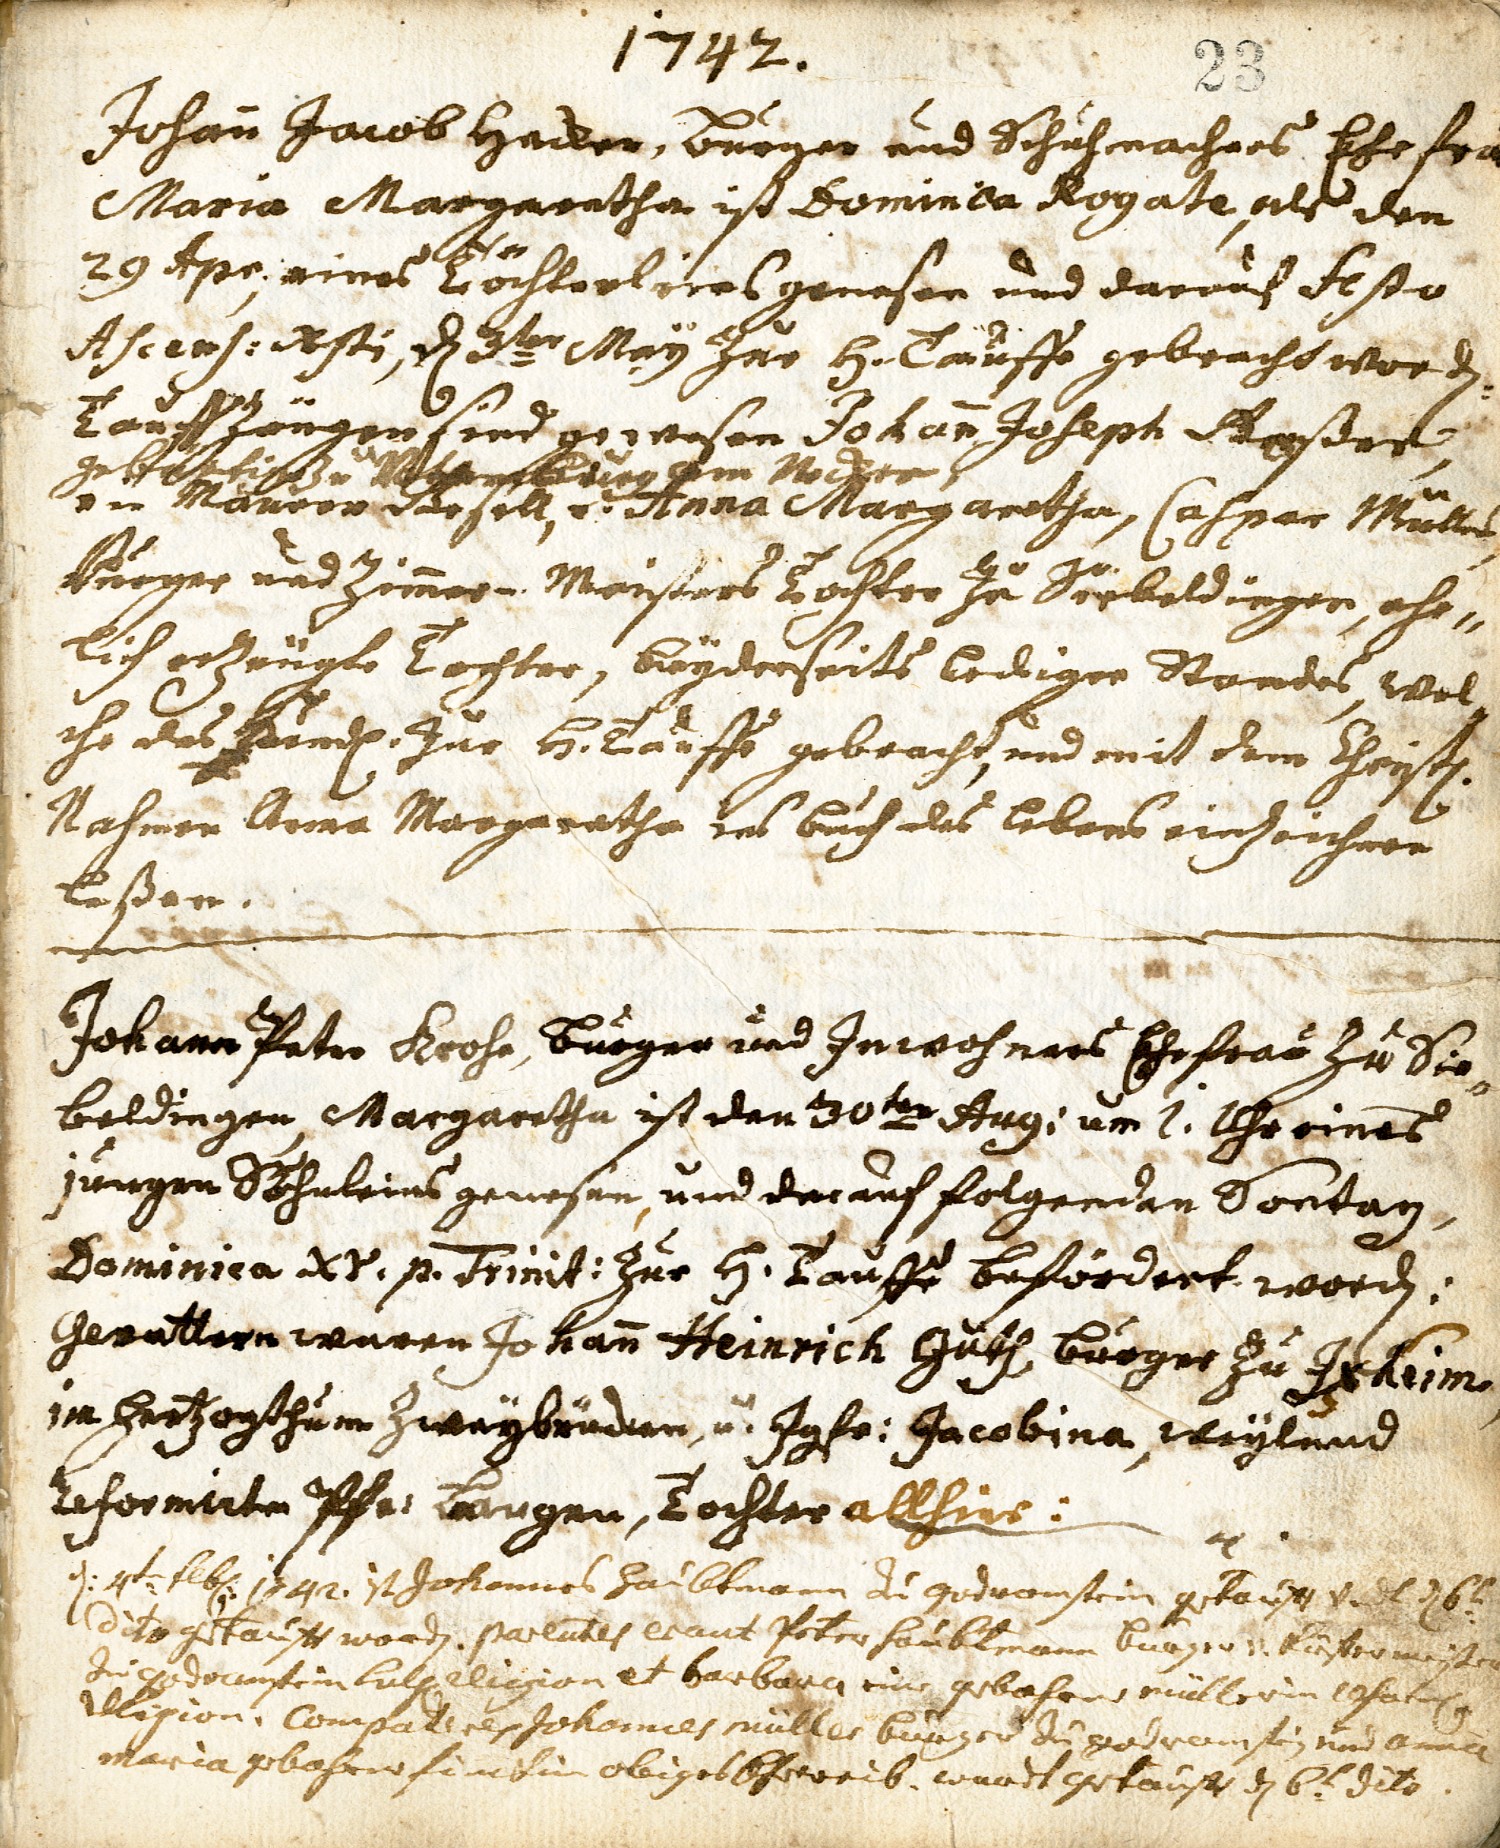 1742.
23
Johañ Jacob Hacker, burger und Schuhmachers Ehefra
Maria Margaretha ist Dominica Rogate, als den
29 Apr; eines Töchterleins genesen und darauf Festo
Ascens: Xsti, d. 3ten May zur H. Tauffe gebracht word.
Tauff Zäugen sind gewesen Johañ Joseph
gebürtig zu am Necker,
ein Maurer Gesell, u. Anna Margaretha, Caspar Müllers,
Burger und Zim̄er-Meisters Tochter zu Siebeldingen, ehe„
lich erzeugte Tochter, beyderseits lediger Standes, wel„
che das Kindl. zur H. Tauffe gebracht, und mit dem Christl.
Nahmen Anna Margaretha ins buch des lebens einzeichnen
laßen.
Johann Peter Krohe, burger und Inwohners Ehefrau zu Sie„
beldingen, Margaretha ist den 30ten Aug: um 1. Uhr eines
jungen Söhnleins genesen, und darauf folgenden Sontag,
Dominica XV. p. Trinit: zur H. Tauffe befördert word:
Gevattern waren Johañ Heinrich Guth, burger zu Ixheim
im hertzogthum Zweybrücken, u. Jgfr: Jacobina, weyland
Reformirten Pfr: Langen, Tochter allhier:
d: 4t 1742. ist Johannes Haubtmann zu godramstein d 6t
dito getaufft word. parentes erant Peter Haubtmann burger u.
zu godramstein religion et barbara eine gebohrne müllerin
religion. Compatres Johannes müller burger zu godramstein und anna
maria gebohrne obiges Eheweib. wurdt getaufft d 6t dito.